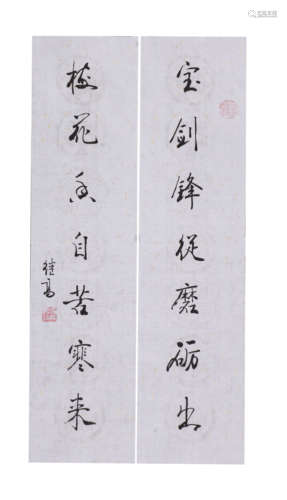 宝剑锋從磨砺出
梅花香自苦寒来